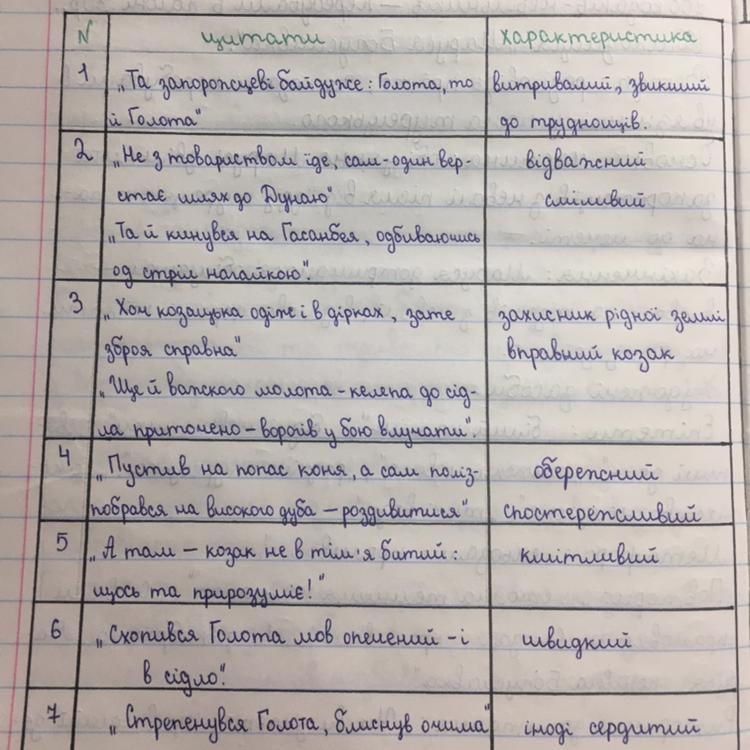 N цитати характеристика
1 „Та запорожцеві байдуже: Голота, то витривалий, звикший
й Голота" до труднощів.
2 „Не з товариством їде, сам-один вер- відважний
стає шлях до Дунаю" сміливий
„Та й кинувся на Гасанбея, одбиваючись
од стріл нагайкою".
3 „Хоч козацька одіж і в дірках, зате захисник рідної землі
зброя справна" вправний козак
„Ще й важкого молота-келепа до сід-
ла приточено - ворогів у бою влучати".
4 „Пустив на попас коня, а сам поліз- обережний
побрався на високого дуба — роздивитися" спостережливий
5 „А там — козак не в тім'я битий: кмітливий
щось та прирозуміє!"
6 „Схопився Голота мов опечений - і швидкий
в сідло".
7 „Стрепенувся Голота, блиснув очима" іноді сердитий